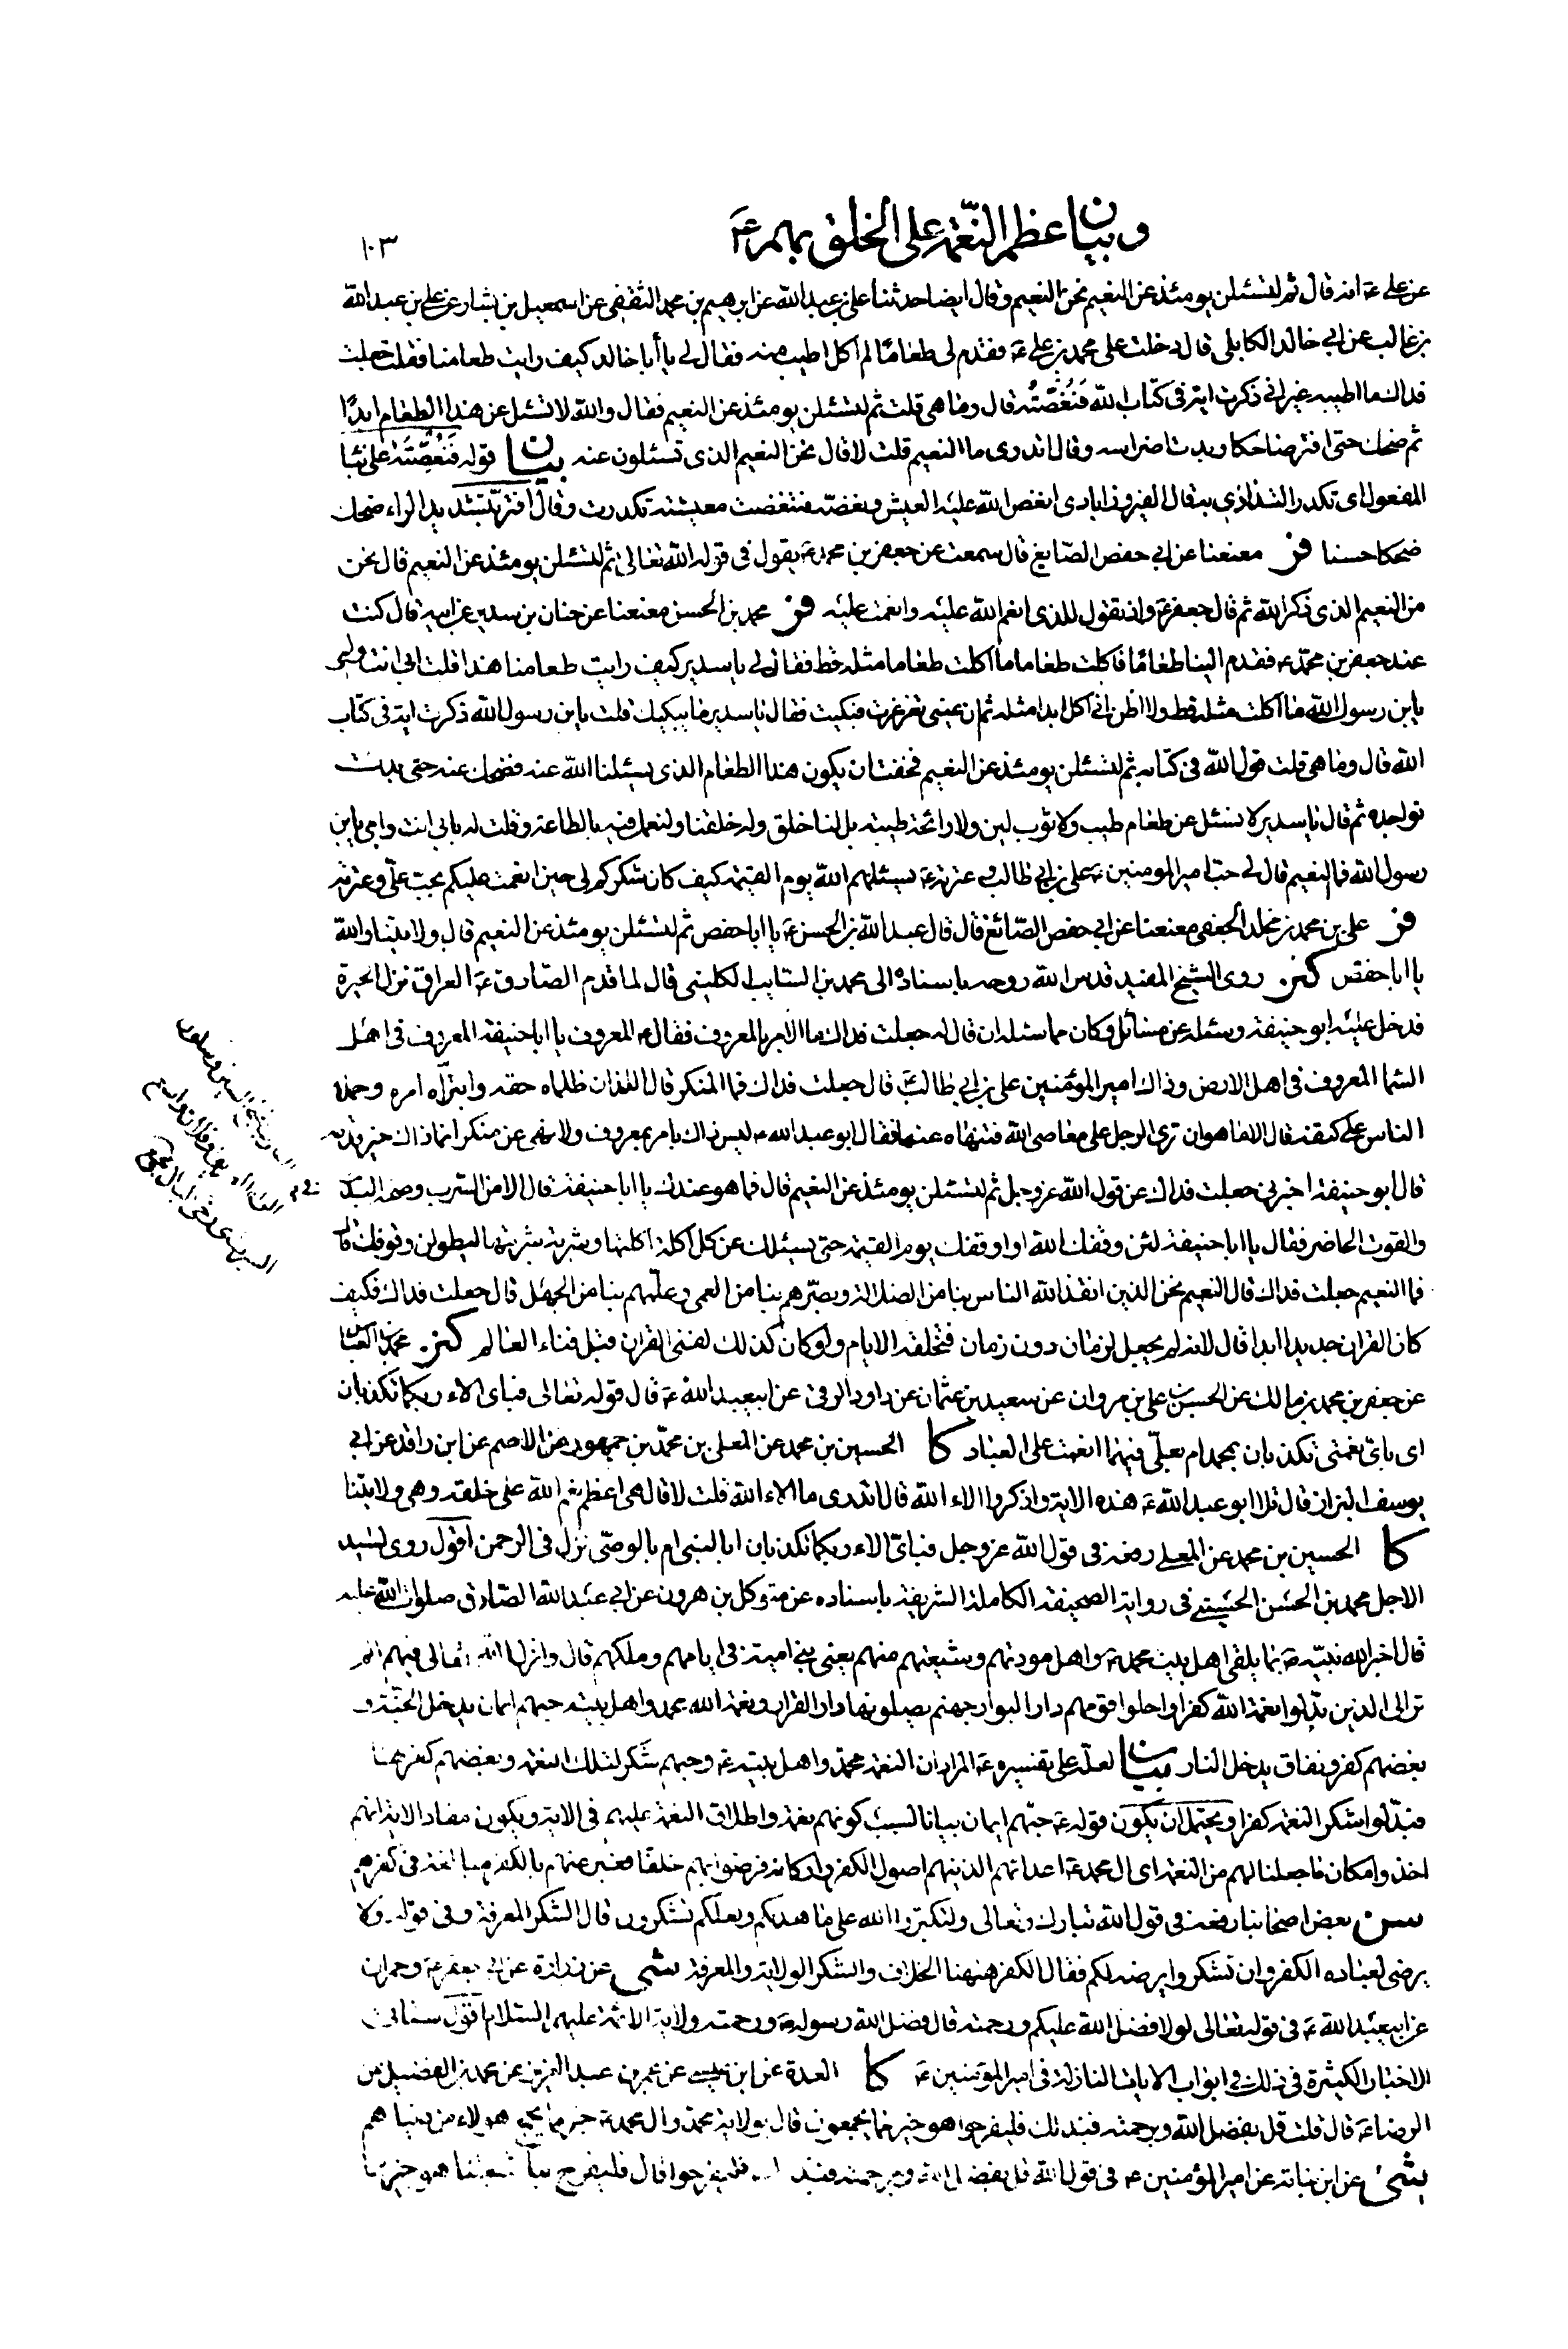 وبيان عظم النّعمة على الخلق بهم ع
١٠٣
عن علي ع انه قال ثم لتسئلن يومئذ عن النعيم نحن النعيم وقال ايضا حدثنا علي بن عبد الله عن ابرهيم بن محمد الثقفى عن اسمعيل بن بشار عن علي بن عبد الله
بن غالب عن ابي خالد الكابلى قال دخلت على محمد بن علي ع فقدم لى طعامًا لم اكل اطيب منه فقال لى يا أبا خالد كيف رايت طعامنا فقلت جعلت
فداك ما اطيبه غير انى ذكرت اية فى كتاب الله فَنُغِّصْتُه قال وما هى قلت ثم لتسئلن يومئذ عن النعيم فقال والله لا تسئل عن هذا الطعام ابدًا
ثم ضحك حتى افتر ضاحكا وبدت اضراسه وقال اتدرى ما النعيم قلت لا قال نحن النعيم الذى تسئلون عنه بيان قوله فَنُغِّصْتَه على بناء
المفعول اى تكدر التذاذي به قال الفيروزابادى انغص الله عليه العيش ونغصه فتنغصت معيشته تكدرت وقال افتر بتشديد الراء ضحك
ضحكا حسنا فر معنعنا عن ابي حفص الصّايغ قال سمعت عن جعفر بن محمد ع يقول فى قوله الله تعالى ثم لتسئلن يومئذ عن النعيم قال نحن
من النعيم الذى ذكر الله ثم قال جعفر ع واذ تقول للذى انعم الله عليه وانعمت عليه فر محمد بن الحسن معنعنا عن حنان بن سدير عن ابيه قال كنت
عند جعفر بن محمّد ع فقدم الينا طعامًا فاكلت طعاما ما اكلت طعاما مثله قط فقال لى يا سدير كيف رايت طعامنا هذا قلت بابى انت وامى
يابن رسول الله ما اكلت مثله قط ولا اظن انى اكل ابدا مثله ثم ان عينى تغرغرت فبكيت فقال يا سدير ما يبكيك قلت يابن رسول الله ذكرت اية فى كتاب
الله قال وما هى قلت قول الله فى كتابه ثم لتسئلن يومئذ عن النعيم فخفت ان يكون هذا الطعام الذى يسئلنا الله عنه فضحك عنه حتى بدت
نواجده ثم قال يا سدير لا تسئل عن طعام طيب ولا ثوب لين ولا رائحة طيبة بل لنا خلق وله خلقنا ولنعمل فيه بالطاعة وقلت له بابى انت وامى يابن
رسول الله فما النعيم قال لى حب امير المومنين علي بن ابي طالب وعترته ع يسئلهم الله يوم القيمة كيف كان شكركم لى حين انعمت عليكم بحب على وعترته
فر علي بن محمد بن مخلد الجعفى معنعنا عن ابي حفص الصّائغ قال قال عبد الله بن الحسن ع يا ابا حفص ثم لتسئلن يومئذ عن النعيم قال ولايتنا والله
يا ابا حفص كنز روى الشيخ المفيد قدس الله روحه باسناده الى محمد بن السايب الكلبى قال لما قدم الصّادق ع العراق نزل الحيرة
فدخل عليه ابو حنيفة وسئله عن مسائل وكان مما سئله ان قال له جعلت فداك ما الامر بالمعروف فقال ع المعروف يا ابا حنيفة المعروف فى اهل
السّماء المعروف فى اهل الارض وذاك امير المؤمنين علي بن ابي طالب ع قال جعلت فداك فما المنكر قال اللذان ظلماه حقه وابتزاه امره وحملا
الناس على كتفه قال الا ما هو ان ترى الرجل على معاصى الله فتنهاه عنها فقال ابو عبد الله ع ليس ذاك بامر بمعروف ولا نهى عن منكر انما ذاك خير قدمه
قال ابو حنيفة اخبرنى جعلت فداك عن قول الله عز وجل ثم لتسئلن يومئذ عن النعيم قال فما هو عندك يا ابا حنيفة قال الامن السرب وصحة البدن
والقوت الحاضر فقال يا ابا حنيفة لئن وقفك الله او اوقفك يوم القيمة حتى يسئلك عن كل اكلة اكلتها وشربة شربتها ليطولن وقوفك قال
فما النعيم جعلت فداك قال النعيم نحن الذين انقذ الله الناس بنا من الضلالة وبصّرهم بنا من العمى وعلّمهم بنا من الجهل قال جعلت فداك فكيف
كان القران جديدا ابدا قال لانه لم يجعل لزمان دون زمان فتخلقه الايام ولو كان كذلك لفنى القران قبل فناء العالم كنز محمد بن العباس
عن جعفر بن محمد بن مالك عن الحسن بن علي بن مروان عن سعيد بن عثمان عن داود الرقى عن ابيعبد الله ع قال قوله تعالى فباى الاء ربكما تكذبان
اى باىّ نعمتى تكذبان بمحمد ام بعلّى فبهما انعمت على العباد كا الحسين بن محمد عن المعلى بن محمّد بن جمهور عن الاصم عن ابن واقد عن ابي
يوسف البزاز قال تلا ابو عبد الله ع هذه الاية واذكروا الاء الله قال اتدرى ما الاء الله قلت لا قال هى اعظم نعم الله على خلقه وهى ولايتنا
كا الحسين بن محمد عن المعلى رفعه فى قول الله عز وجل فباىّ الاء ربكما تكذبان ابالنبى ام بالوصّى نزل فى الرحمن اقول روى السّيد
الاجل محمد بن الحسَن الحسينى فى رواية الصحيفة الكاملة الشريفة باسناده عن متوكل بن هرون عن ابي عبد الله الصّادق صلوات الله عليه
قال اخبر الله نبيّه ص بما يلقى اهل بيت محمد ع واهل مودتهم وشيعتهم منهم يعنى بنى امية فى ايامهم وملكهم قال وانزل الله تعالى فيهم الم
تر الى الذين بدّلوا نعمة الله كفرا واحلوا قومهم دار البوار جهنم يصلونها دار القرار ونعمة الله محمد واهل بيته حبهم ايمان يدخل الجنّة و
بغضهم كفر ونفاق يدخل النار بيان لعلّه على تفسيره ع المراد ان النعمة محمّد واهل بيته ع وحبهم شكر لتلك النعمة وبغضهم كفر بها
فبدّلوا شكر النعمة كفرا ويحتمل ان يكون قوله ع حبّهم ايمان بيانا لسبب كونهم نعمة واطلاق النعمة عليهم فى الاية ويكون مفاد الاية انهم
اخذوا مكان ما جعلنا لهم من النعمة اى ال محمد ع اعدائهم الذينهم اصول الكفر واركانه فرضوا بهم خلفا فعبر عنهم بالكفر مبالغة فى كفرهم
سن بعض اصحابنا رفعه فى قول الله تبارك وتعالى ولتكبّروا الله على ما هديكم ولعلّكم تشكرون قال الشكر المعرفة وفى قوله ولا
يرضى لعباده الكفر وان تشكروا يرضه لكم فقال الكفر هيهنا الخلاف والشكر الولاية والمعرفة شى عن زرارة عن ابي جعفر ع وحمران
عن ابيعبد الله ع فى قوله تعالى لولا فضل الله عليكم ورحمته قال فضل الله رسوله ص ورحمته ولاية الائمة عليهم السّلام اقول ستاتى
الاخبار الكثيرة فى ذلك فى ابواب الايات النازلة فى امير المؤمنين ع كا العدة عن ابن عيسى عن عمر بن عبد العزيز عن محمد بن الفضيل عن
الرضا ع قال قلت قل بفضل الله وبرحمته فبذلك فليفرحوا هو خير مما يجمعون قال بولاية محمد وال محمد ع خير مما يجمع هولاء من دنياهم
شى عن ابن نباتة عن امير المؤمنين ع فى قول الله قل بفضل الله وبرحمته فبذلك فليفرحوا قال فليفرح شيعتنا هو خير مما